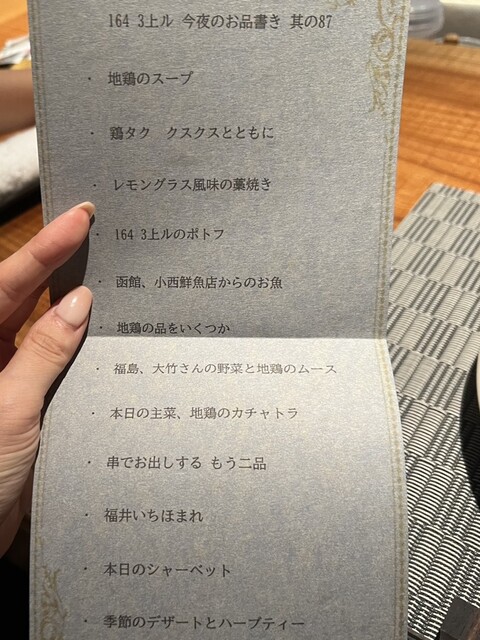 164 3上ル 今夜のお品書き 其の87
・ 地鶏のスープ
・ 鶏タク　クスクスとともに
・ レモングラス風味の藁焼き
・ 164 3上ルのポトフ
・ 函館、小西鮮魚店からのお魚
・ 地鶏の品をいくつか
・ 福島、大竹さんの野菜と地鶏のムース
・ 本日の主菜、地鶏のカチャトラ
・ 串でお出しする もう二品
・ 福井いちほまれ
・ 本日のシャーベット
・ 季節のデザートとハーブティー